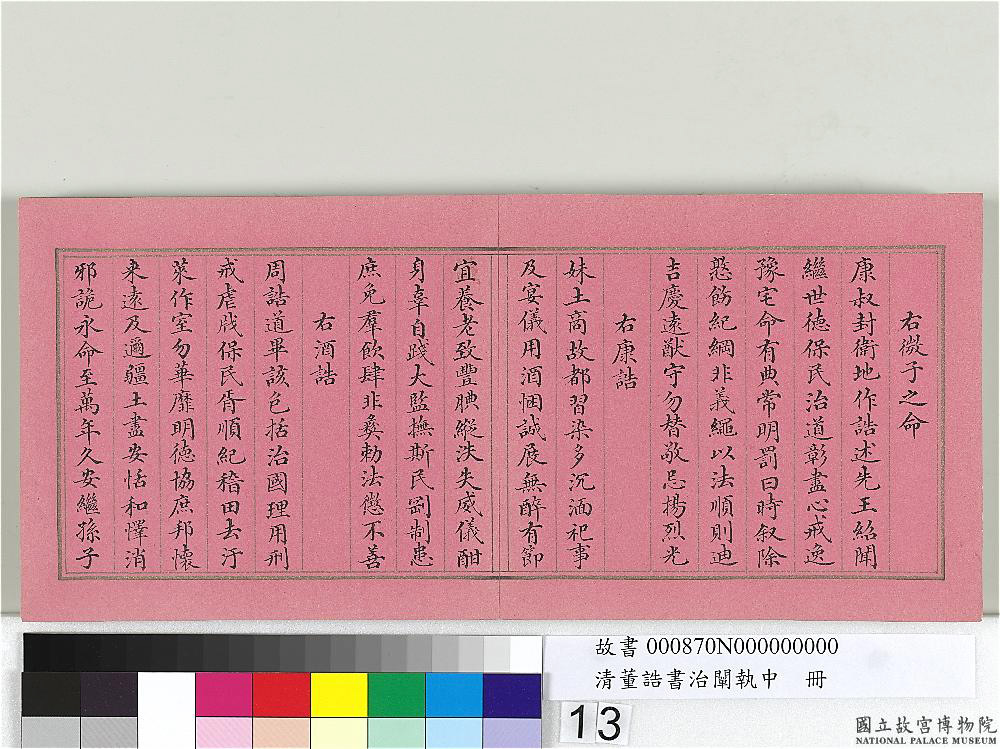 右微子之命
康叔封衛地作誥述先王紹聞
繼世德保民治道彰盡心戒逸
豫宅命有典常明罰曰時叙除
憝飭紀綱非義繩以法順則迪
吉慶遠猷守勿替敬忌揚烈光
右康誥
妹土商故都習染多沉湎祀事
及宴儀用酒悃誠展無醉有節
宜養老致豐腆縱泆失威儀酣
身辜自踐大監撫斯民剛制患
庶免羣飲肆非彝勑法懲不善
右酒誥
周誥道畢該包括治國理用刑
戒虐戕保民胥順紀稽田去汙
萊作室勿華靡明德協庶邦懷
来遠及邇疆土盡安恬和懌消
邪詭永命至萬年久安繼孫子
故書 000870N000000000
清董誥書治闡執中 冊
13
國立故宮博物院
NATIONAL PALACE MUSEUM